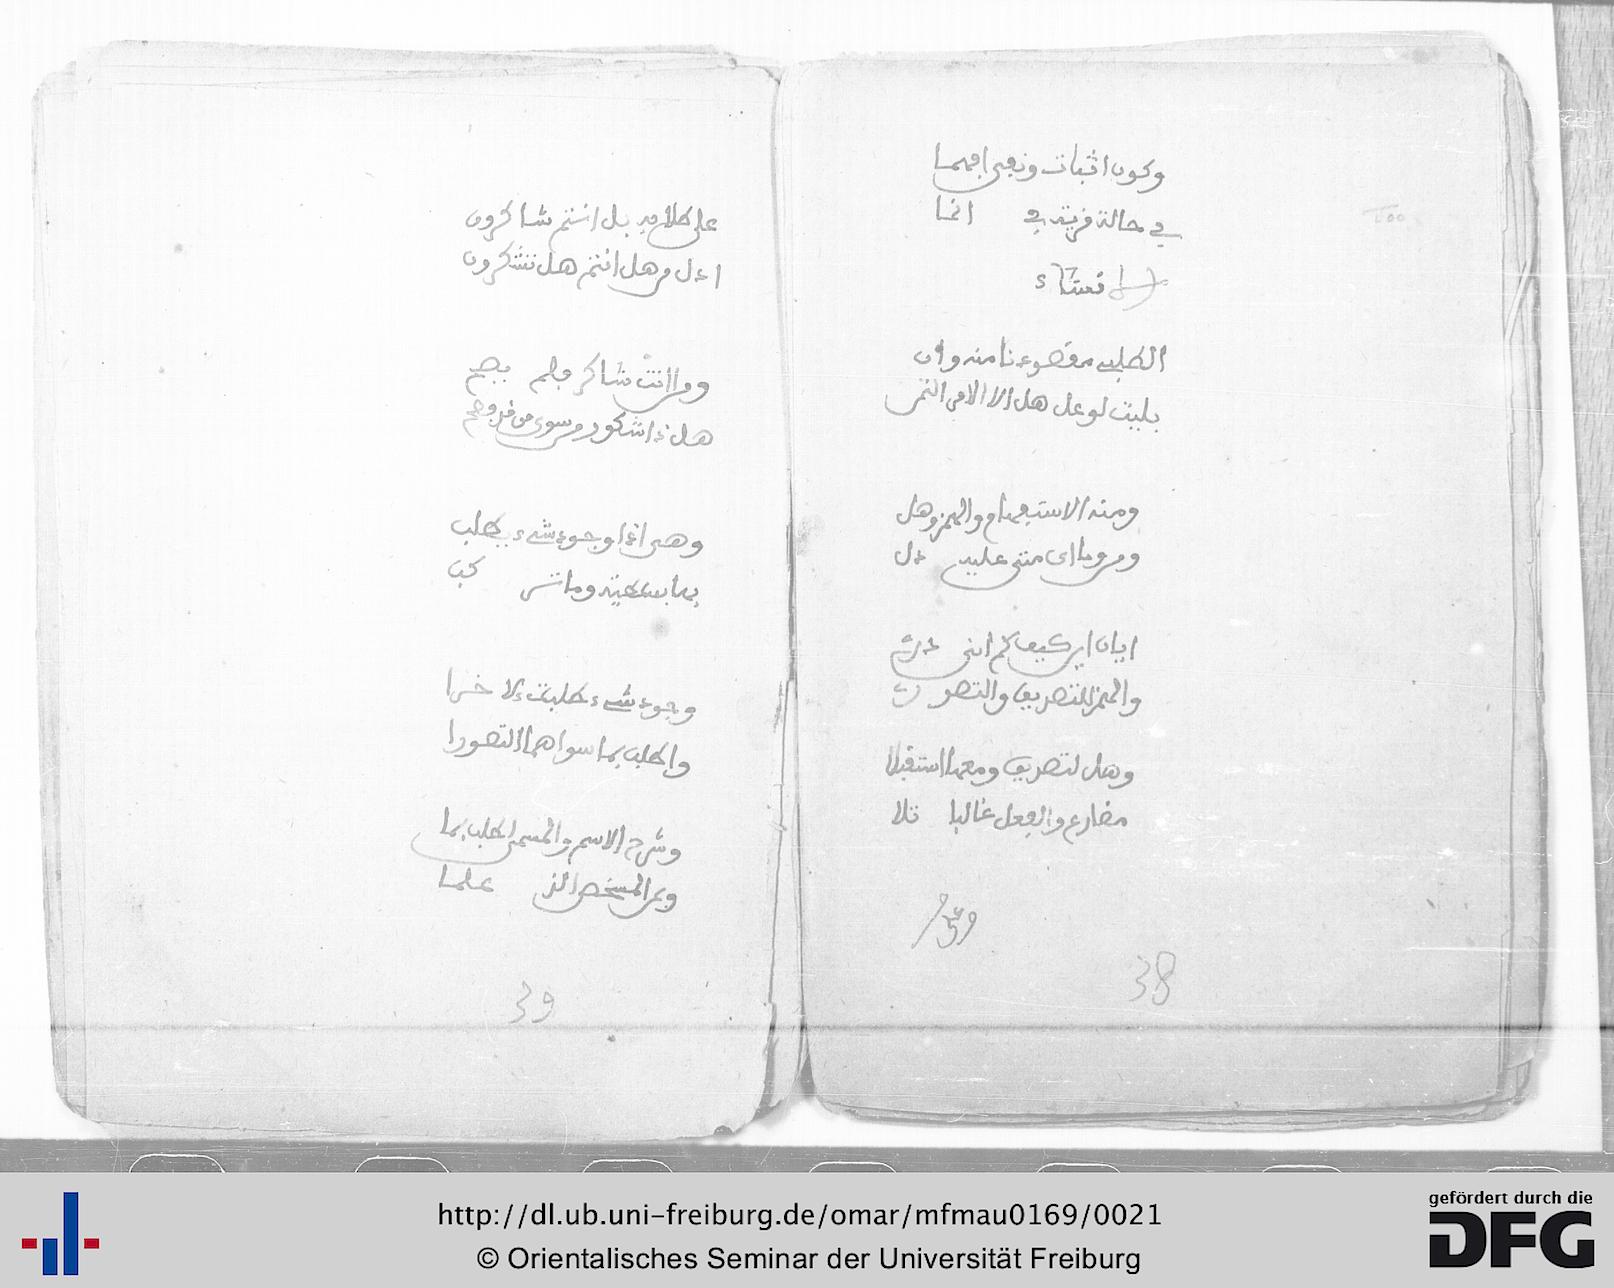 وكون اثبات ونفي افهما
في حالة فريقه في انما
الإنشاء
الطلب مقصودنا منه وان
بليت لو عل هل الا الامر التمن
ومنه الاستفهام والهمز وهل
ومن وما اى متى عليه دل
ايان اين كيف كم انى
والهمز للتصديق والتصور
وهل لتصديق ومعها استقبلا
مضارع والفعل غالبا تلا
38
على طلابه بل انتم شاكرون
ادل من هل انتم هل تشكرون
ومن اانت شاكر فلم
هل ذا شكور من سوى من
وهي اذا وجود شيء يطلب
بها بسيطة وما
وجود شيء طلبت لا خرا
واطلب بما سواهما التصورا
وشرح الاسم والمسمى اطلب بما
وبمن المشخص الذي علما
39
http://dl.ub.uni-freiburg.de/omar/mfmau0169/0021
© Orientalisches Seminar der Universität Freiburg
gefördert durch die
DFG